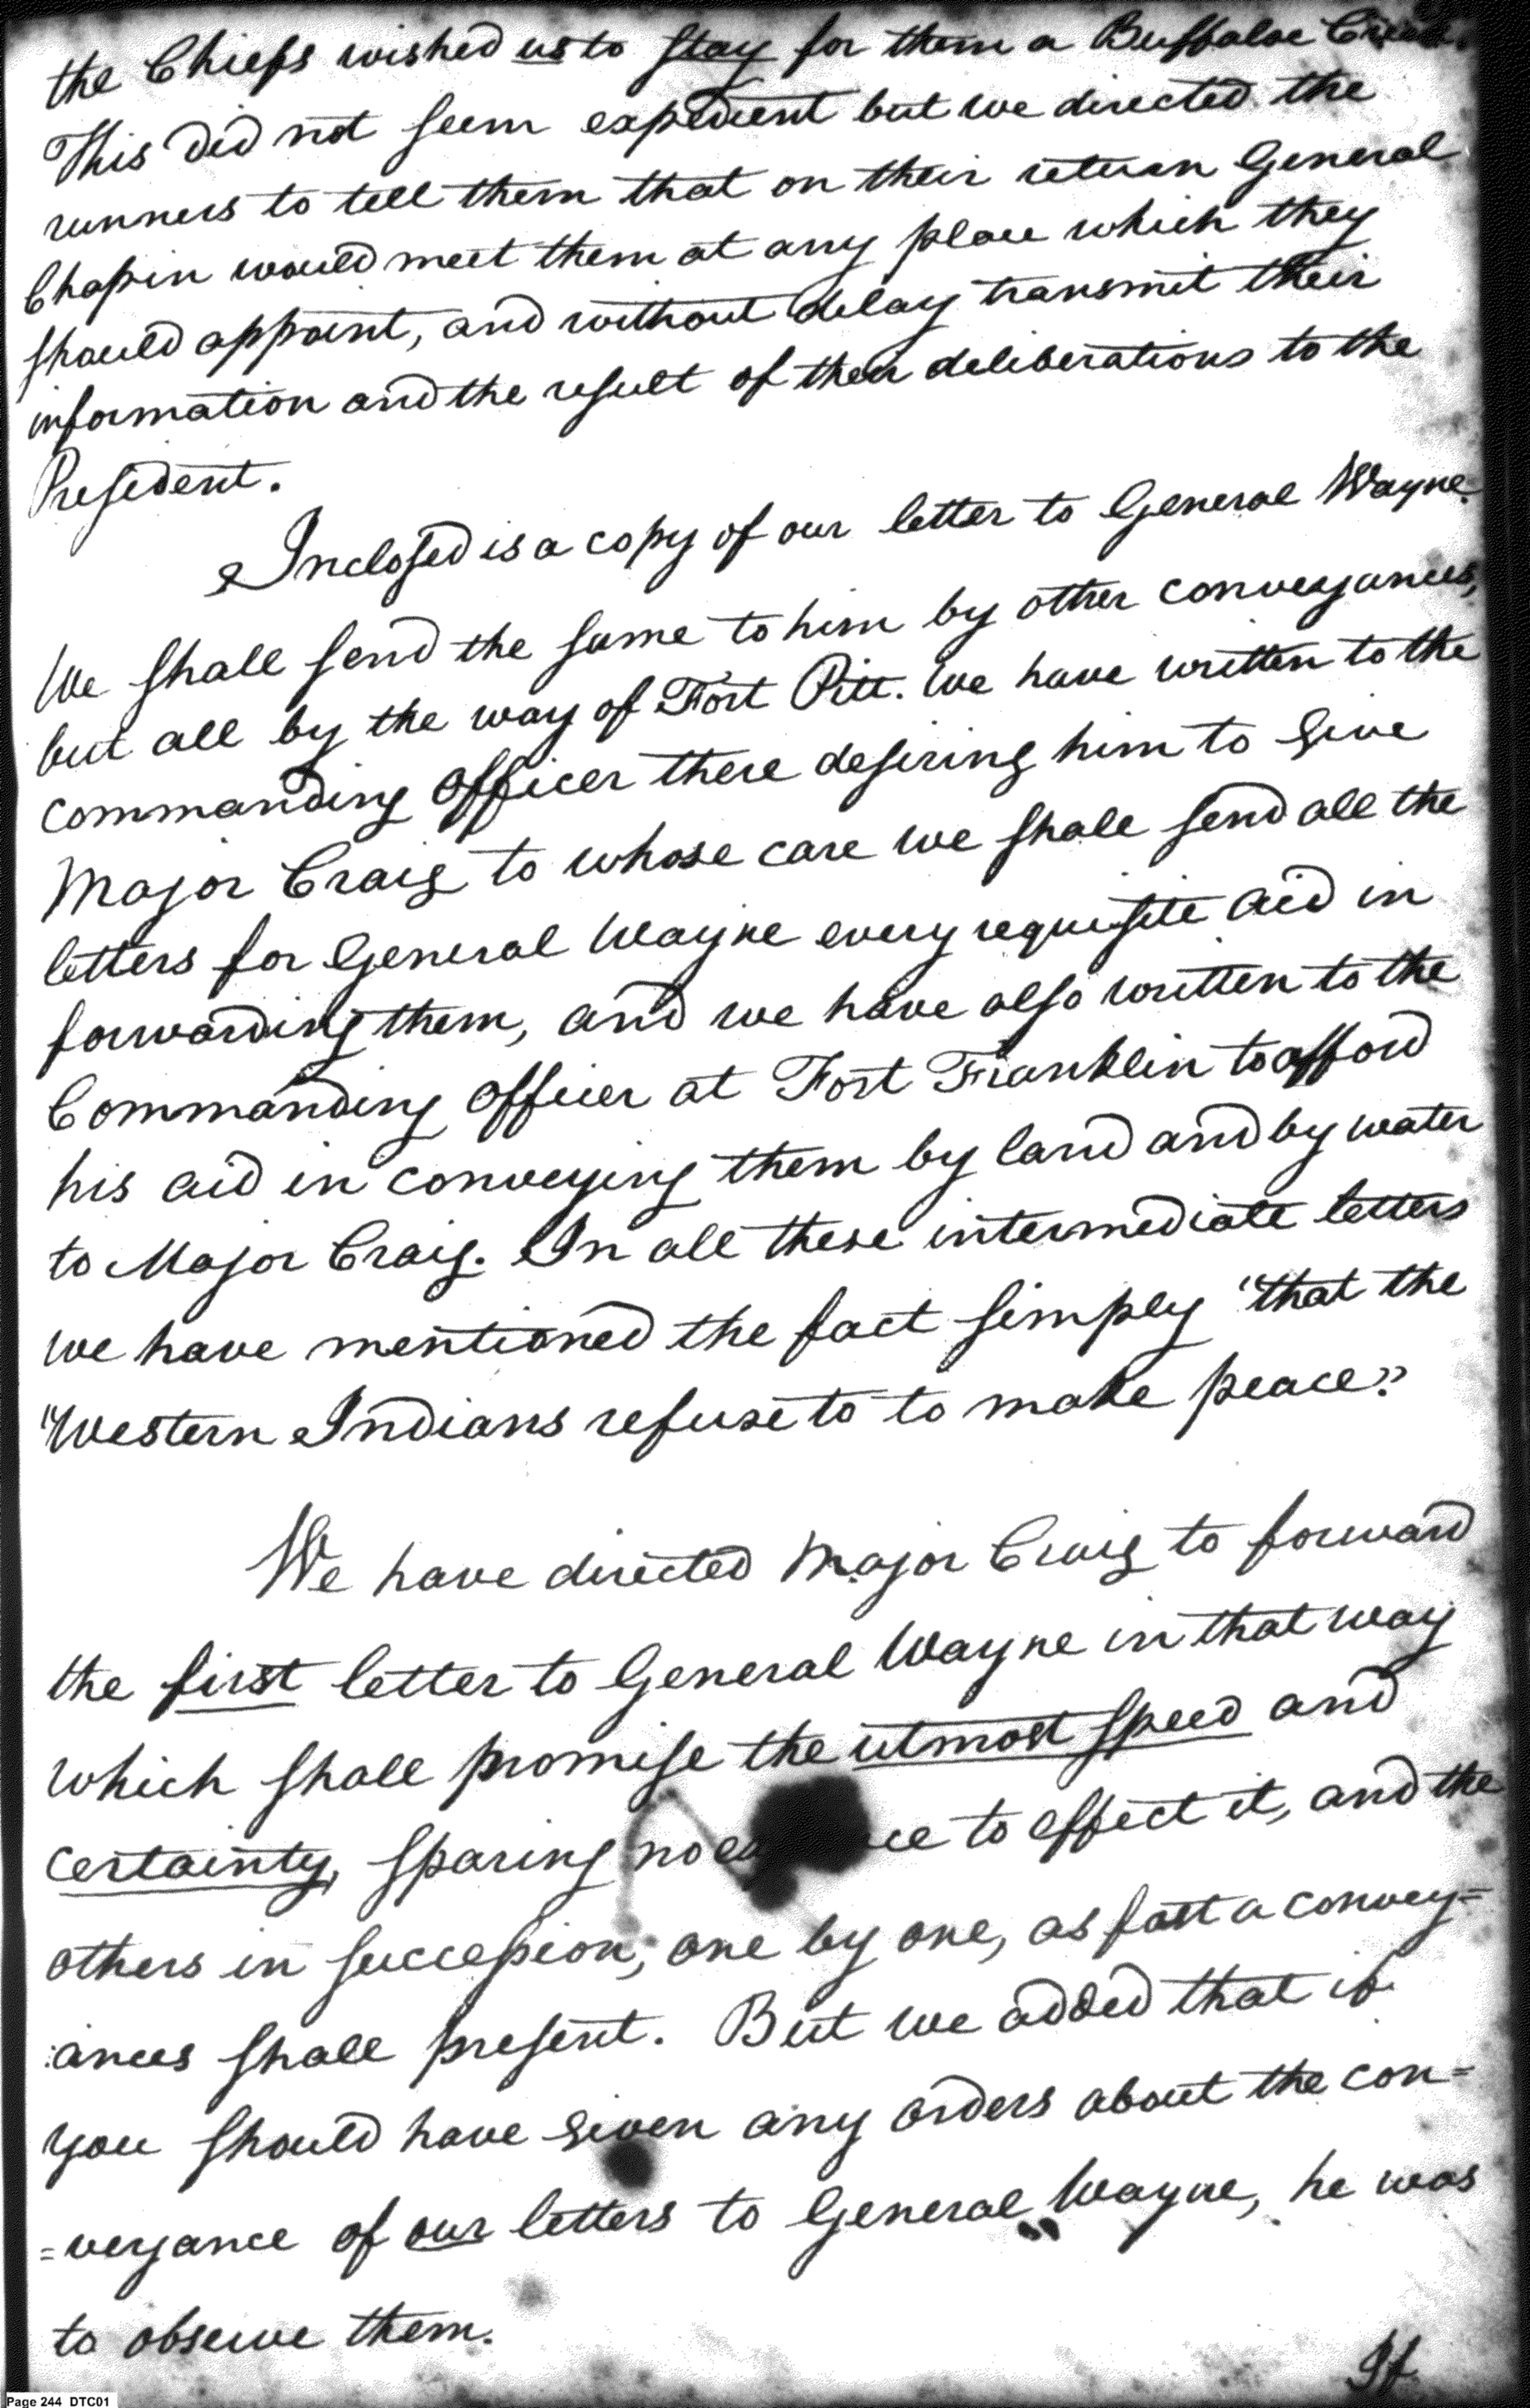 the Chiefs wished us to stay for them a Buffaloe Creek.
This did not seem expedient but we directed the
runners to tell them that on their return General
Chapin would meet them at any place which they
should appoint, and without delay transmit their
information and the result of their deliberations to the
President.
Inclosed is a copy of our letter to General Wayne.
We shall send the same to him by other conveyances,
but all by the way of Fort Pitt. We have written to the
commanding officer there desiring him to give
Major Craig to whose care we shall send all the
letters for General Wayne every requisite aid in
forwarding them, and we have also written to the
Commanding officer at Fort Franklin to afford
his aid in conveying them by land and by water
to Major Craig. In all these intermediate letters
we have mentioned the fact simply "that the
"Western Indians refuse to to make peace."
We have directed Major Craig to forward
the first letter to General Wayne in that way
which shall promise the utmost speed and
certainty, sparing no ce to effect it, and the
others in succession, one by one, as fast a convey=
ances shall present. But we added that if
you should have given any orders about the con=
=veyance of our letters to General Wayne, he was
to observe them.
If
Page 244 DTC01